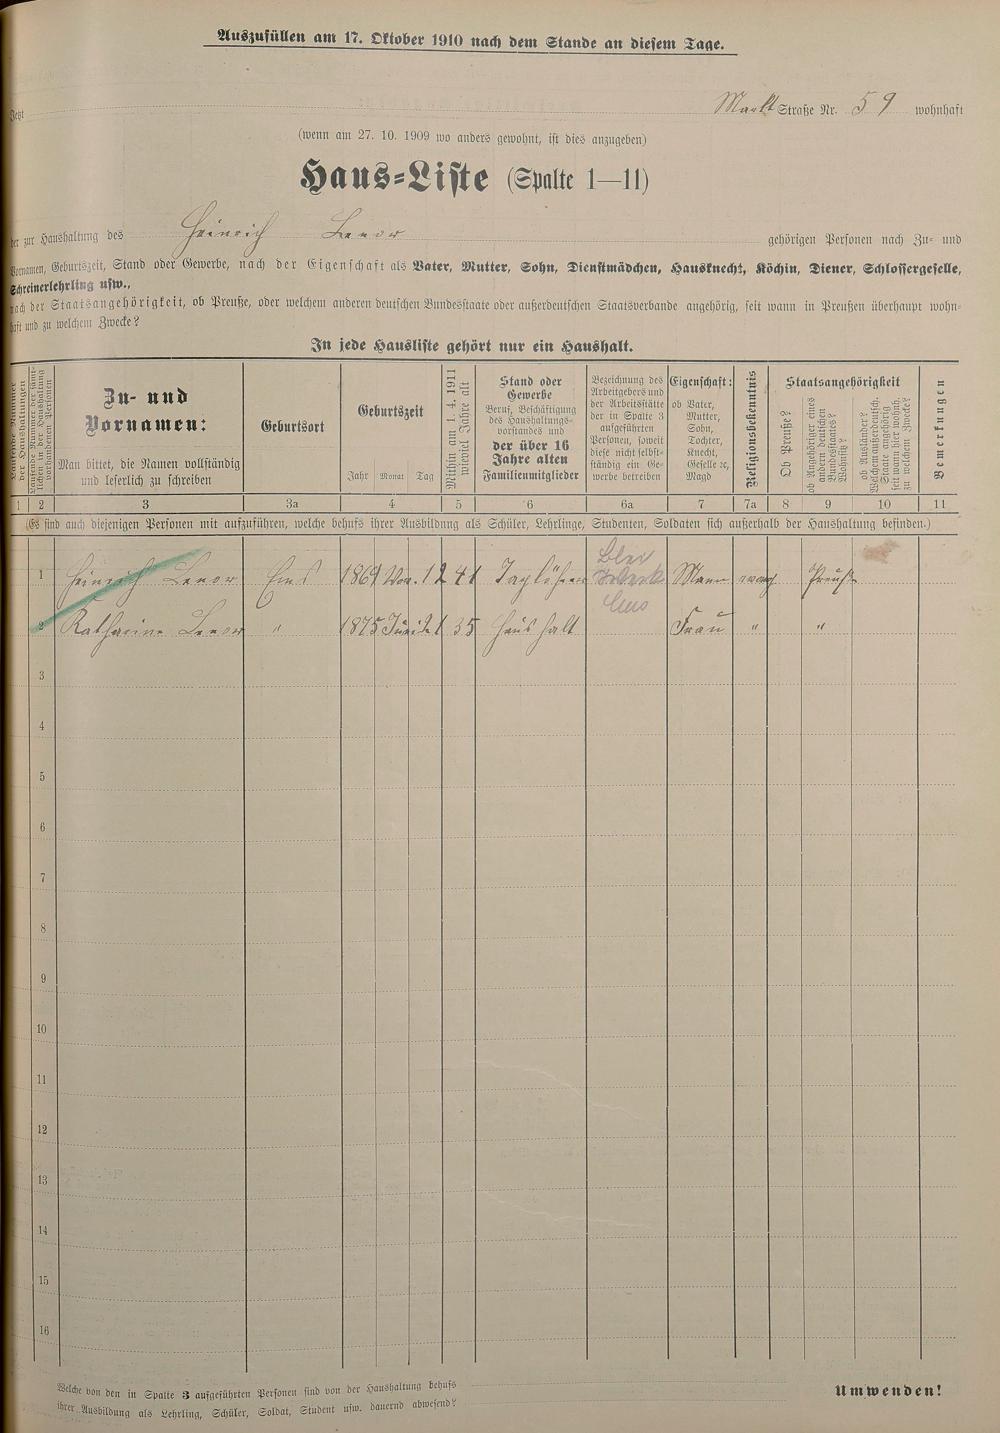 Auszufüllen am 17. Oktober 1910 nach dem Stande an diesem Tage.
Jetzt Markt Straße Nr. 59 wohnhaft
(wenn am 27. 10. 1909 wo anders gewohnt, ist dies anzugeben)
Haus-Liste (Spalte 1—11)
der zur Haushaltung des Heinrich Lenor gehörigen Personen nach Zu- und
Vornamen, Geburtszeit, Stand oder Gewerbe, nach der Eigenschaft als Vater, Mutter, Sohn, Dienstmädchen, Hausknecht, Köchin, Diener, Schlossergeselle,
Schreinerlehrling usw.,
nach der Staatsangehörigkeit, ob Preuße, oder welchem anderen deutschen Bundesstaate oder außerdeutschen Staatsverbande angehörig, seit wann in Preußen überhaupt wohn-
haft und zu welchem Zwecke?
In jede Hausliste gehört nur ein Haushalt.
Laufende Nummer der Haushaltungen
Laufende Nummer der sämt-lichen in der Haushaltung vorhandenen Personen
Zu- und
Vornamen:
Man bittet, die Namen vollständig
und leserlich zu schreiben
Geburtsort
Geburtszeit
Jahr Monat Tag
Mithin am 1. 4. 1911 wieviel Jahre alt
Stand oder
Gewerbe
Beruf, Beschäftigung
des Haushaltungs-
vorstandes und
der über 16
Jahre alten
Familienmitglieder
Bezeichnung des
Arbeitgebers und
der Arbeitsstätte
der in Spalte 3
aufgeführten
Personen, soweit
diese nicht selbst-
ständig ein Ge-
werbe betreiben
Eigenschaft:
ob Vater,
Mutter,
Sohn,
Tochter,
Knecht,
Geselle ꝛc,
Magd
Religionsbekenntnis
Staatsangehörigkeit
Ob Preuße?
ob Angehöriger eines
andern deutschen
Bundesstaates?
Wohnsitz?
ob Ausländer?
Welchem außerdeutsch.
Staate angehörig
seit wann hier wohnh.
zu welchem Zwecke?
Bemerkungen
1 2 3 3a 4 5 6 6a 7 7a 8 9 10 11
(Es sind auch diejenigen Personen mit aufzuführen, welche behufs ihrer Ausbildung als Schüler, Lehrlinge, Studenten, Soldaten sich außerhalb der Haushaltung befinden.)
1 Heinrich Lenor Ems 1869 Nov. 12 41 Taglöhner Blei Werk Ems Mann evang Preuße
2 Katharine Lenor " 1875 35 Haushalt Frau " "
3
4
5
6
7
8
9
10
11
12
13
14
15
16
Welche von den in Spalte 3 aufgeführten Personen sind von der Haushaltung behufs
ihrer Ausbildung als Lehrling, Schüler, Soldat, Student usw. dauernd abwesend?
Umwenden!